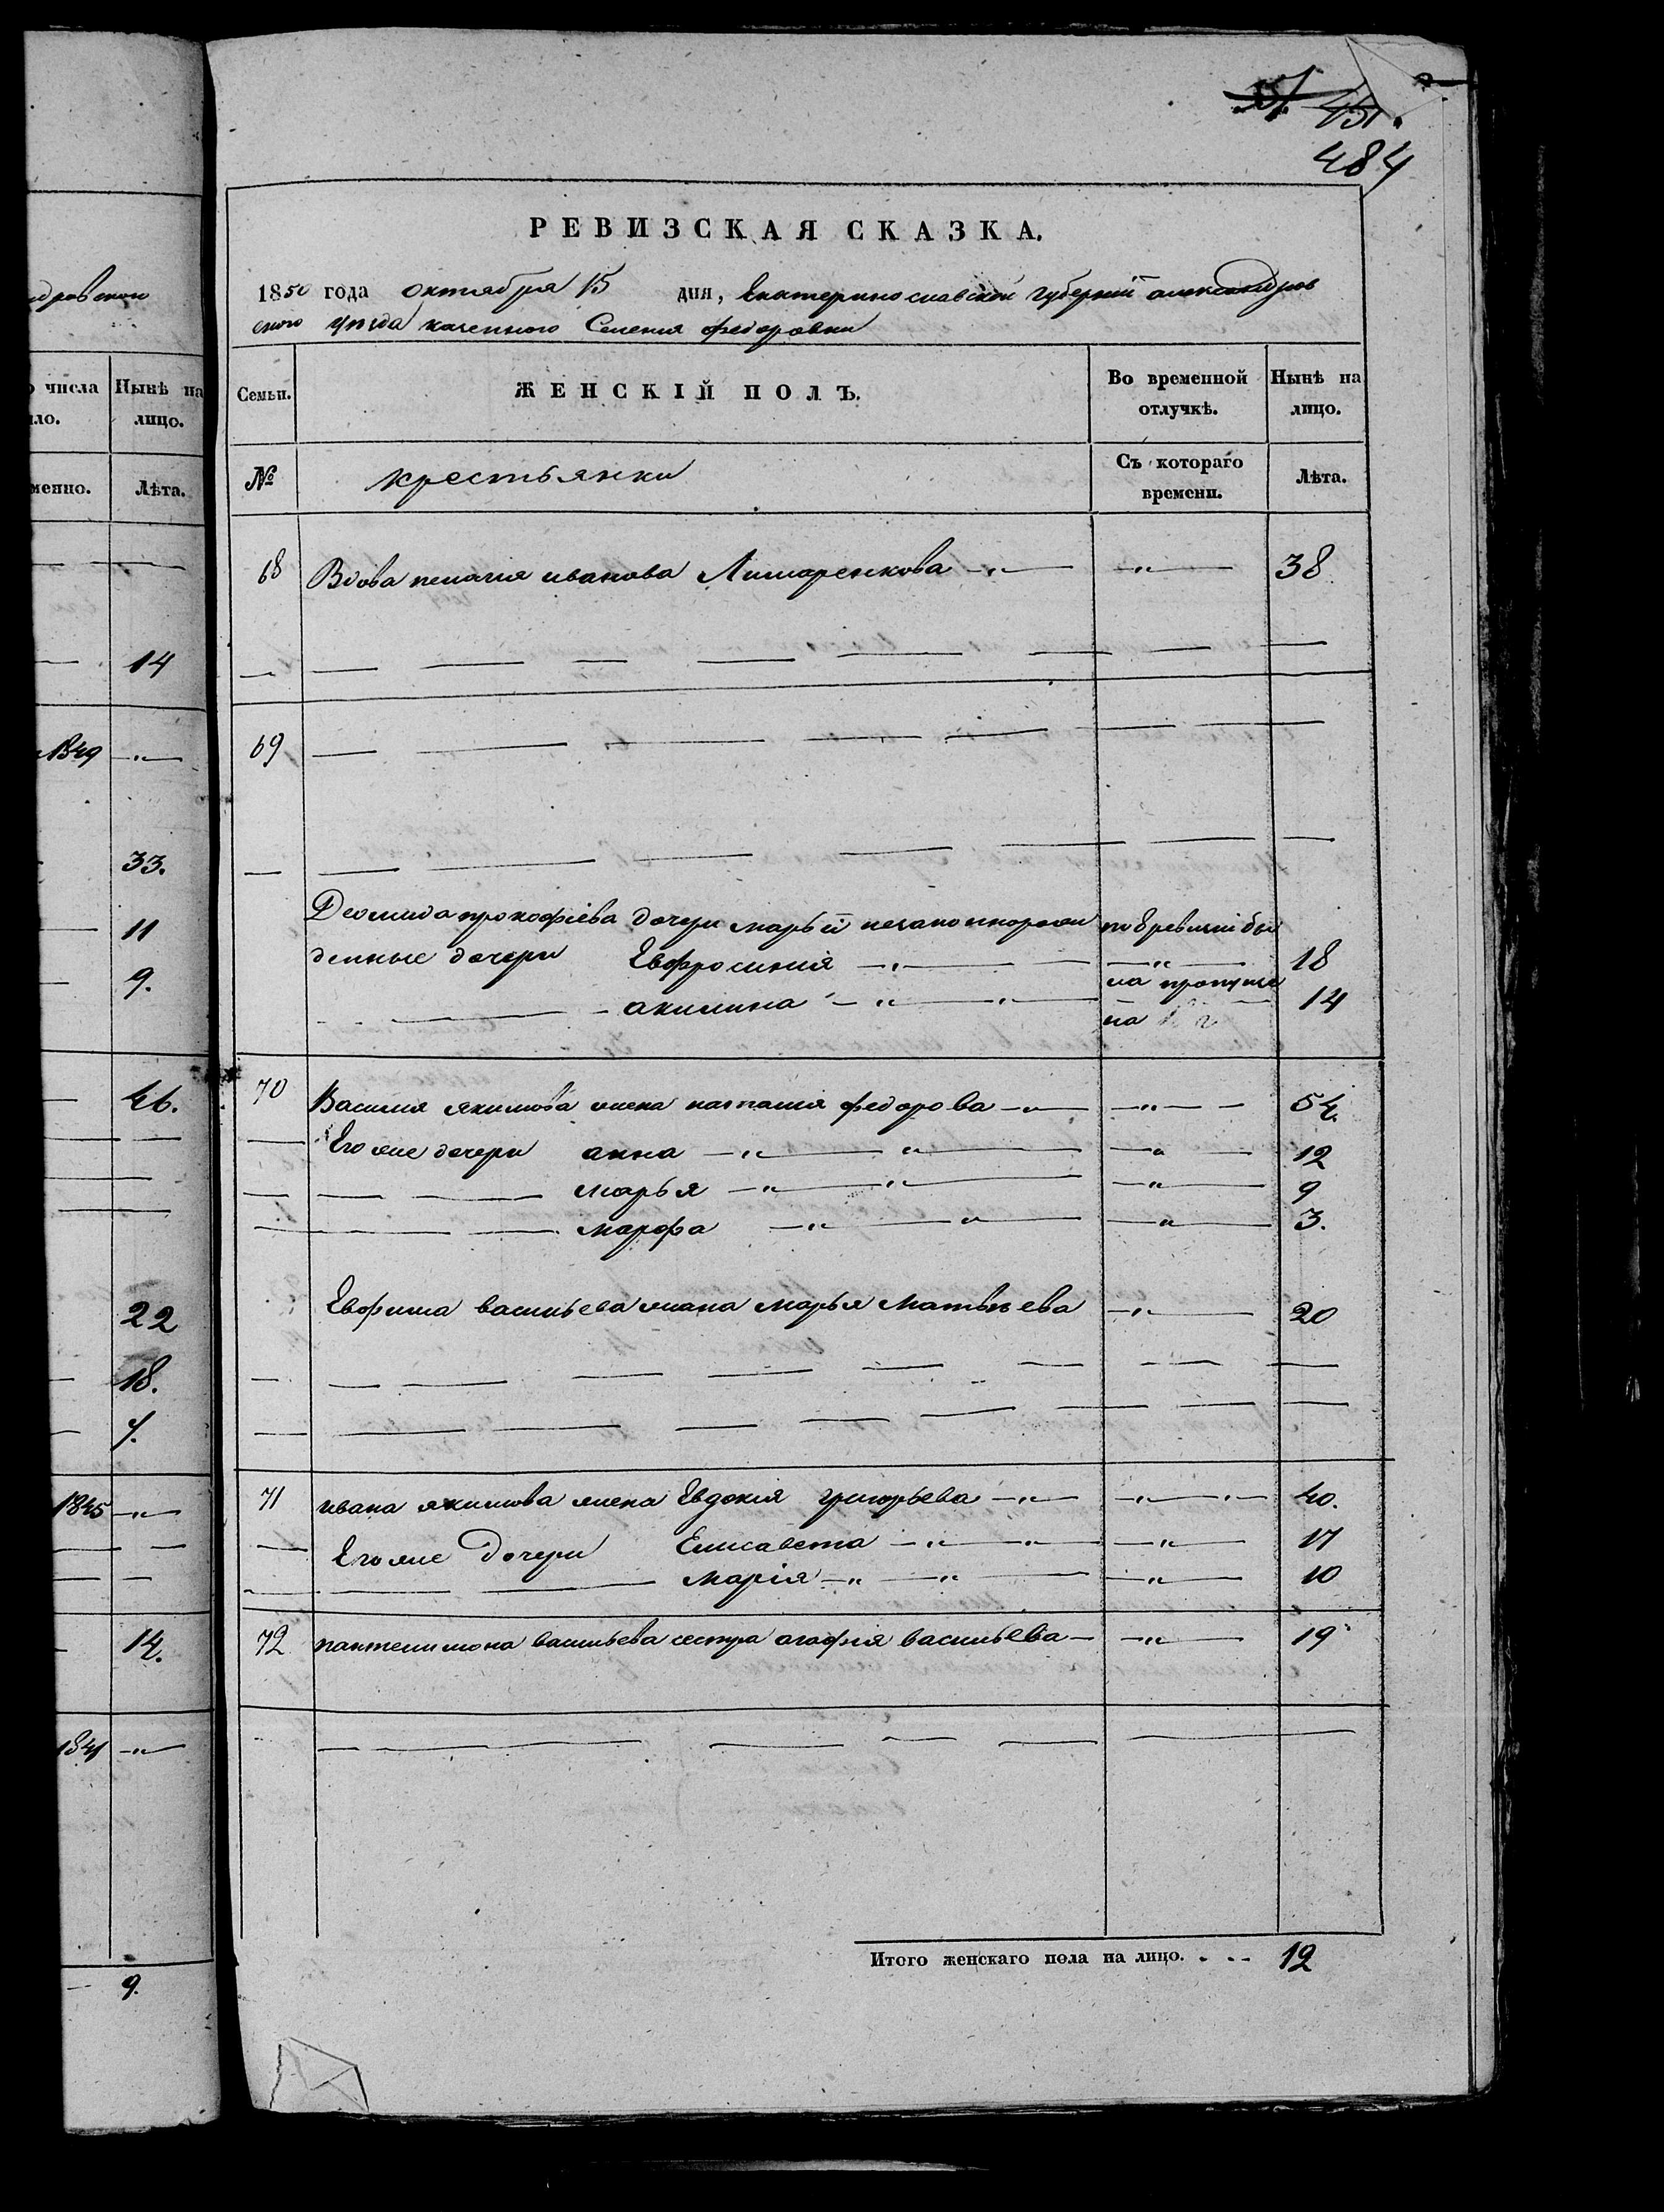 451.
484
РЕВИЗСКАЯ СКАЗКА.
1850 года октября 15 дня, Екатеринославской губерніи александров
ского уѣзда казенного Селения федоровки
числа
Нынѣ на
лицо.
Лѣта.
Семьи.
ЖЕНСКІЙ ПОЛЪ.
Во временной
отлучкѣ.
Нынѣ на
лицо.
№
крестьянки
Съ котораго
времени.
Лѣта.
68 Вдова пелагия иванова Лимаренкова —„— —„— 38
69
Деомида прокофіева дочери марьи незаконнорож
денные дочери Евфросиния —„— —„— 18
ла пропуще
акилина —„— „— на 14
70 Василия якимова жена наталия федорова —„— —„— 54.
Его же дочери анна —„— „— —„— 12
марья —„— „— —„— 9
марфа —„— „— —„— 3.
Евфима васильева жана марья Матвѣева —„— 20
71 ивана якимова жена Евдокія григорьева —„— —„— 40.
Его же дочери Елисавета —„— „— —„— 17
марія —„— „— —„— 10
72 пантелимона васильева сестра агафія васильева — —„— 19
Итого женскаго пола на лицо. 12
14
1849 —„—
33.
11
9.
46.
22
18.
7.
1845 —„—
14.
1841 —„—
9.